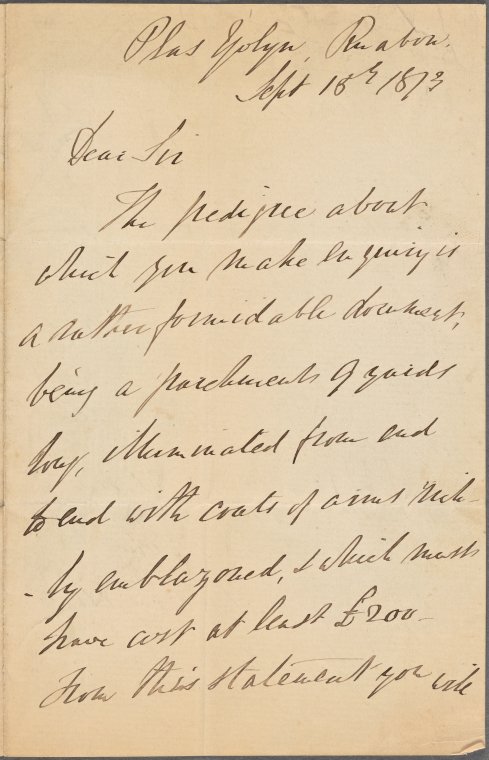 Plas Yolyn, Ruabon.
Sept 18th 1873
Dear Sir
The pedigree about
which you make enquiry is
a rather formidable document,
being a parchment 9 yards
long, illuminated from end
to end with coats of arms rich-
-ly emblazoned, & which must
have cost at least £200-
From this statement you will